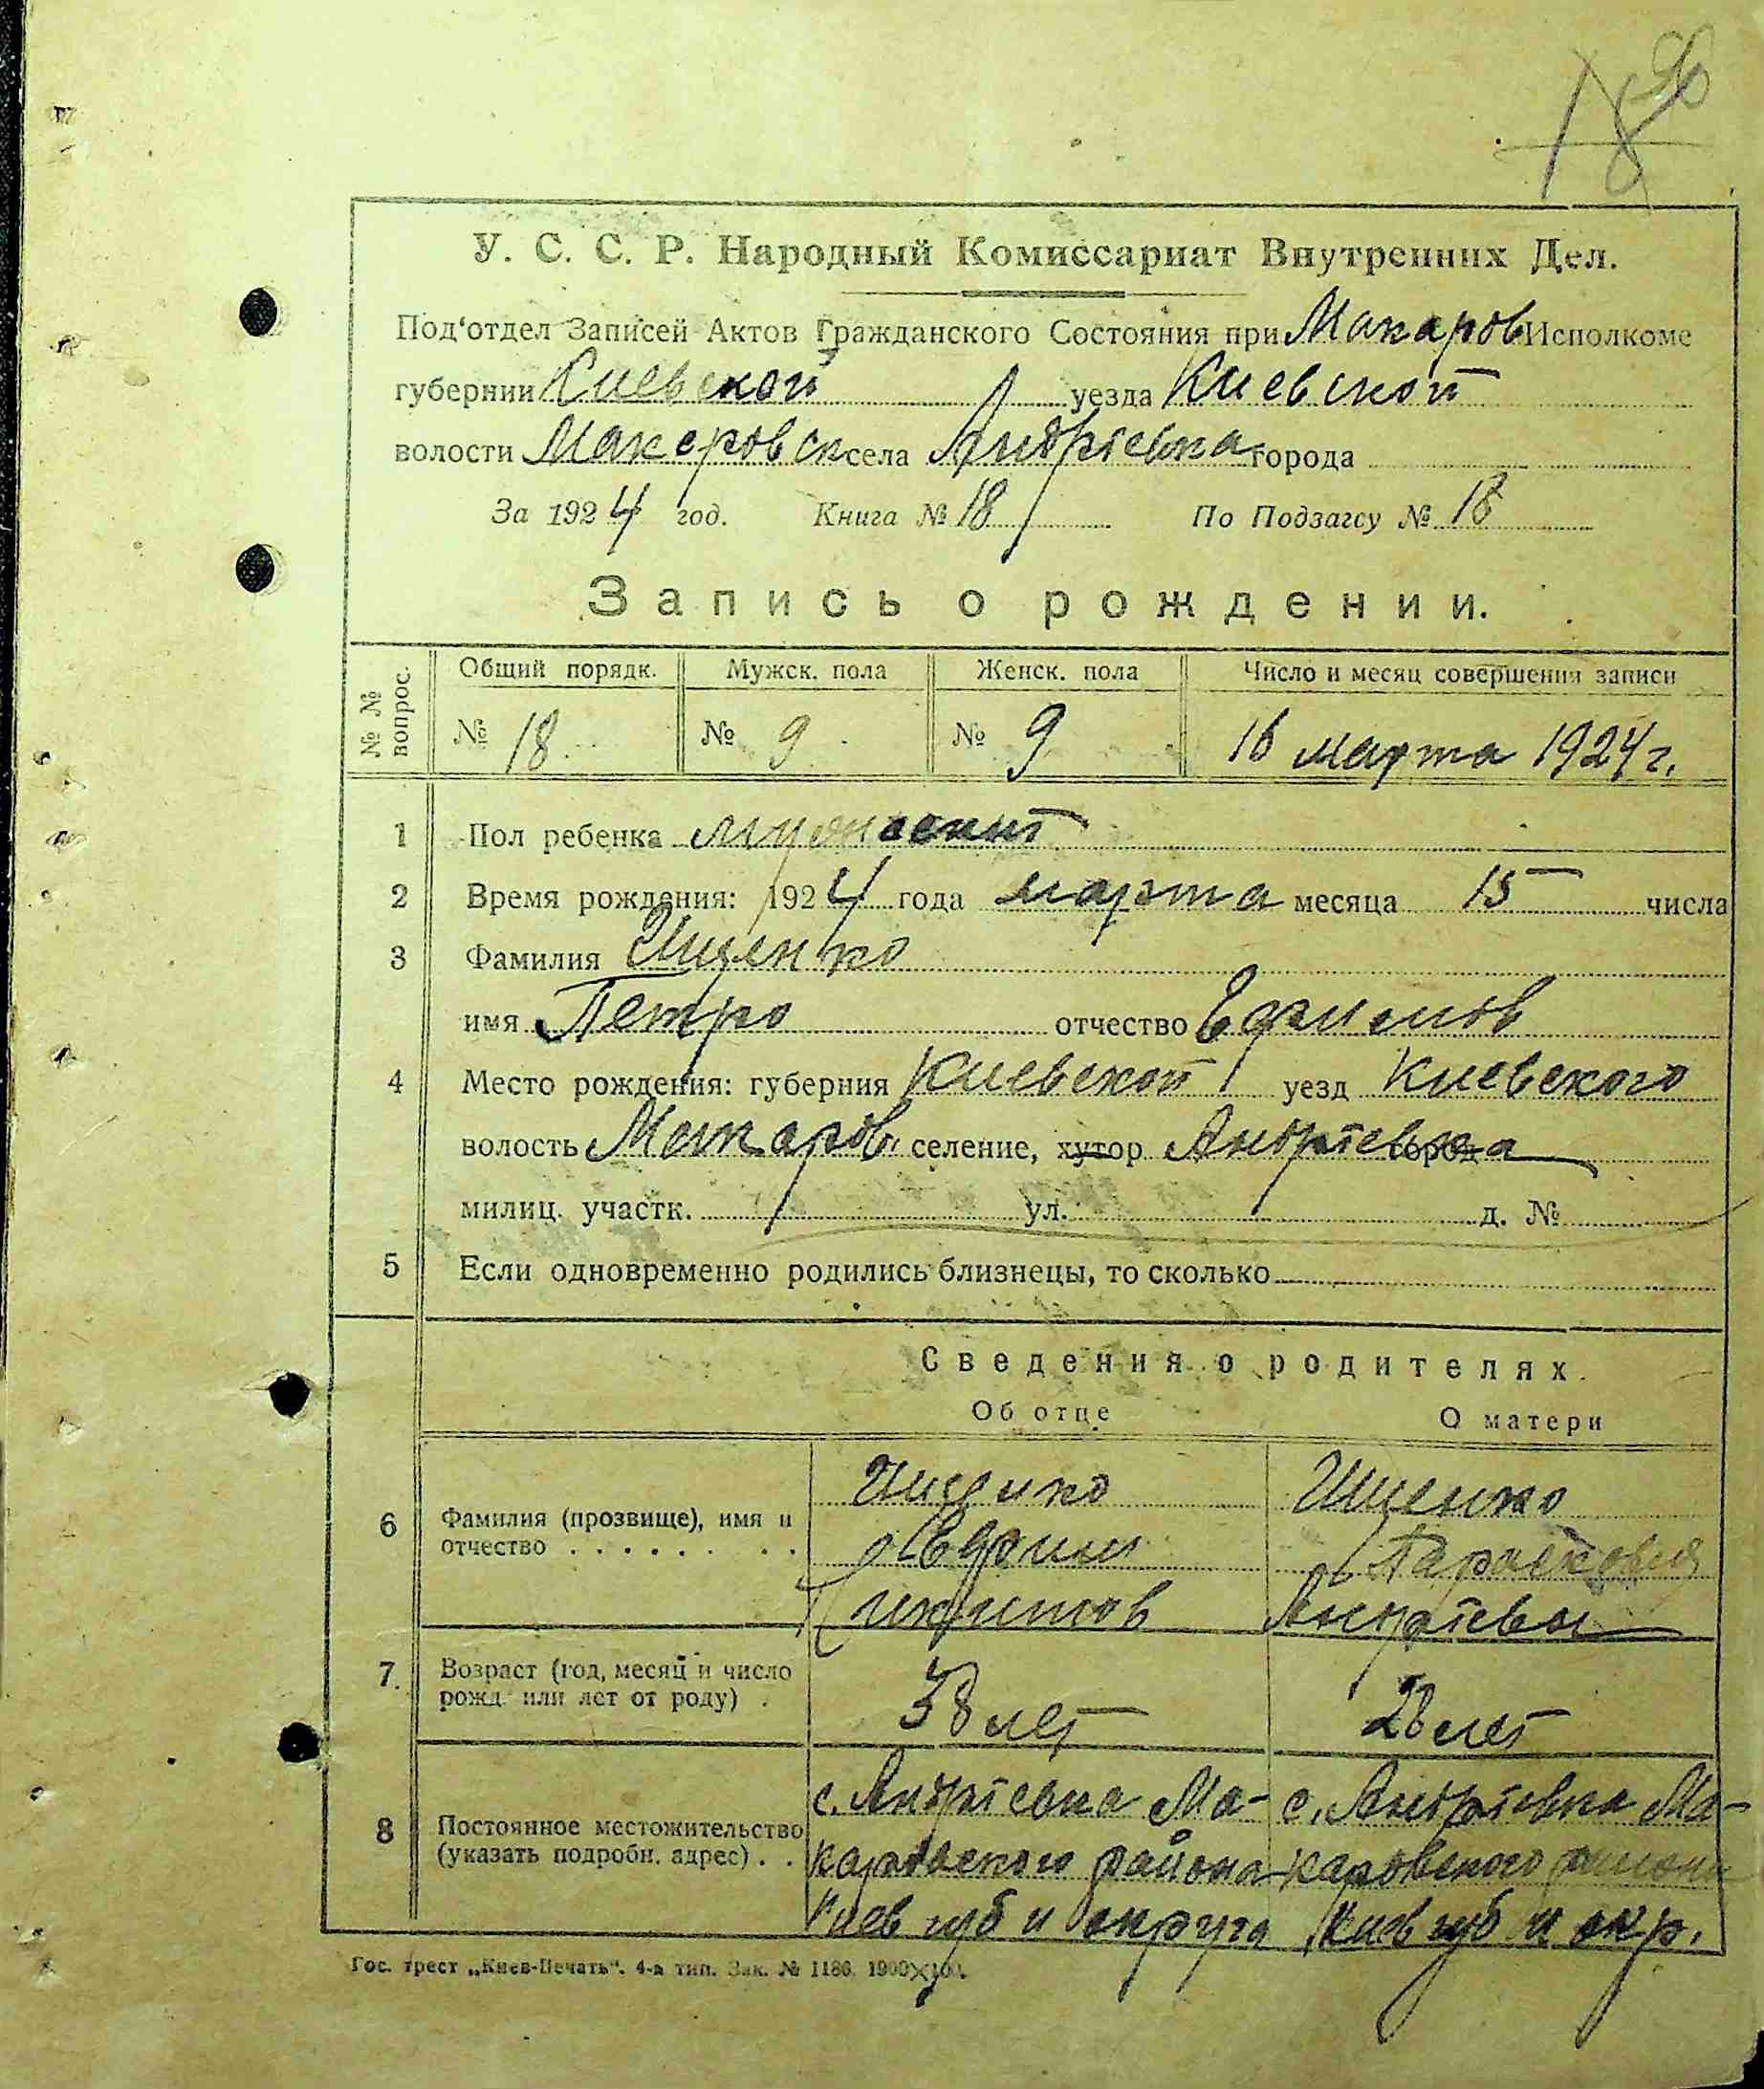 18 90
У. С. С. Р. Народный Комиссариат Внутренних Дел.
Под'отдел Записей Актов Гражданского Состояния при Макаров Исполкоме
губернии Киевской уезда Киевской
волости Макаровск села Андріевка города
За 1924 год. Книга № 18 По Подзагсу № 18
Запись о рождении.
№ № вопрос. Общий порядк. Мужск. пола Женск. пола Число и месяц совершения записи
№ 18 № 9 № 9 16 марта 1924 г.
1 Пол ребенка мужеский
2 Время рождения: 1924 года марта месяца 15 числа
3 Фамилия Ищенко
имя Петро отчество Ефимов
4 Место рождения: губерния Киевской уезд Киевского
волость Макаров селение, хутор Андріевка город
милиц. участк. ул. д. №
5 Если одновременно родились близнецы, то сколько
Сведения о родителях.
Об отце О матери
6 Фамилия (прозвище), имя и отчество
Ищенко
Ефим
Никитов
Ищенко
Параскевия
Андріевы
7. Возраст (год, месяц и число рожд. или лет от роду)
38 лет 28 лет
8 Постоянное местожительство (указать подробн. адрес)
с. Андріевка Ма-
каровского района
Киев губ и округа
с. Андріевка Ма-
каровского района
Киев губ и окр.
Гос. трест „Киев-Печать“. 4-а тип. Зак. № 1186. 1900×100.